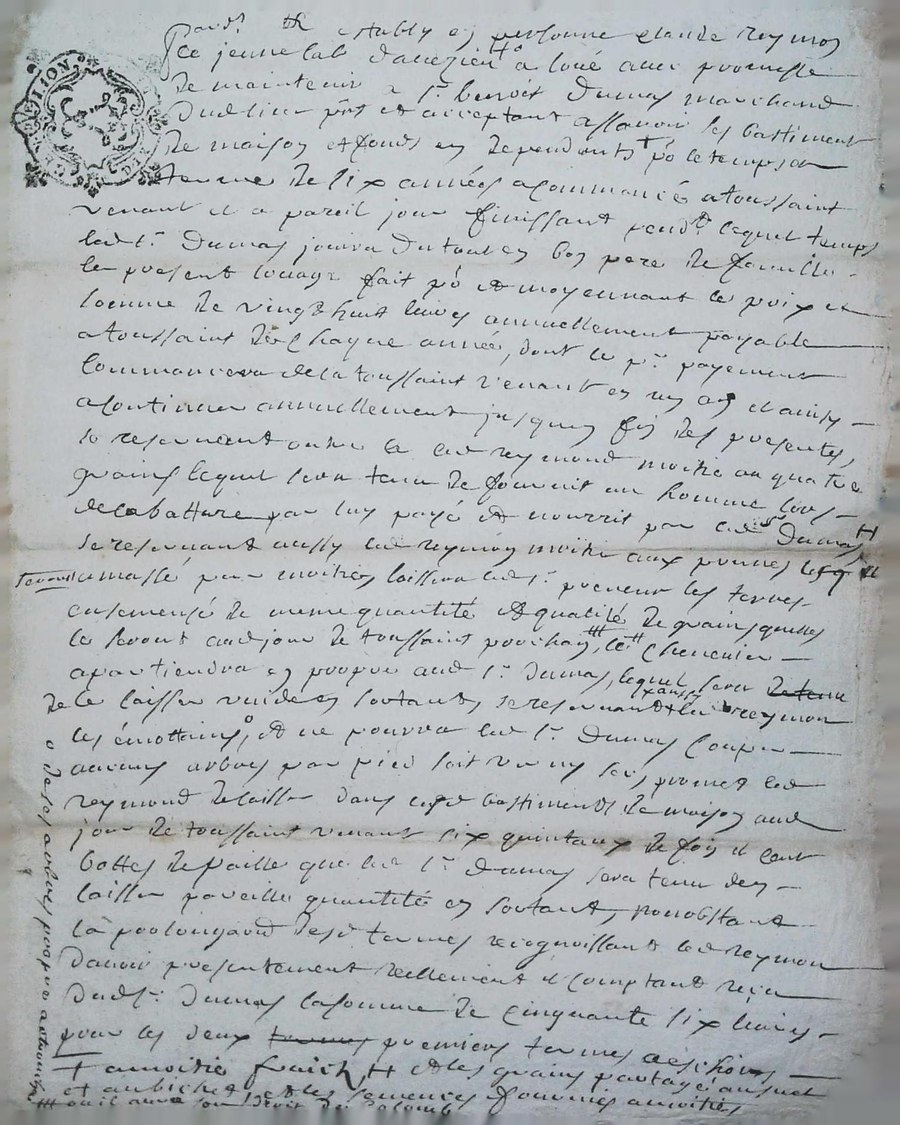 Pard.t establly en personne claude reymon
le jeune lab d'auezieu a loué avec promesse
de maintenir a s.r benoit Dumas marchand
dudlieu p.nt et acceptant assavoir les bastiment
de maison et fonds en dependants + po le temps et
terme de six années a commancé a toussaint
venant et a pareil jour finissant pend.t lequel temps
led s.r Dumas jouira du tout en bon pere de famille
le present louage fait po et moyennant le prix et
somme de vingt huit livres annuellement payable
a toussaint de chaque année, dont le p.r payement
commancera de la toussaint venant en un an et ainsy
a continuer annuellement jusques fin des presentes,
se reservant outre ce led reymond moitie au quatre
grains lequel sera tenu de fournir un homme lors
de la batture par luy payé et nourrit par led s.r Dumas H
se reservant aussy led reymon moitié aux prunes
amassé par moities laissera led s.r preneur les terres
ensemensé de meme quantité et qualité de grains quelles
le seront aud jour de toussaint prochain, le chenevier
apartiendra en propre aud s.r Dumas, lequel sera de tenu
de le laisser vuide en sortant, se reservant led reymon
les émottains, et ne pourra led s.r Dumas couper
aucuns arbres par pied soit vif ou sec, promet led
reymond de laisser dans lesd bastiments de maison aud
jour de toussaint venant six quintaux de foin et cent
bottes de paille que led s.r Dumas sera tenu den
laisser pareille quantité en sortant, nonobstant
la prolongaon desd termes recognoissant led reymon
davoir presentement reellement et comptant reçu
dud s.r Dumas la somme de cinquante six livres
pour les deux termes premiers termes a eschoir
+ a moitié fruict, H et les grains partagé au suel
et au bichet et les semences fournies a moitiés
o de ses arbres propre a